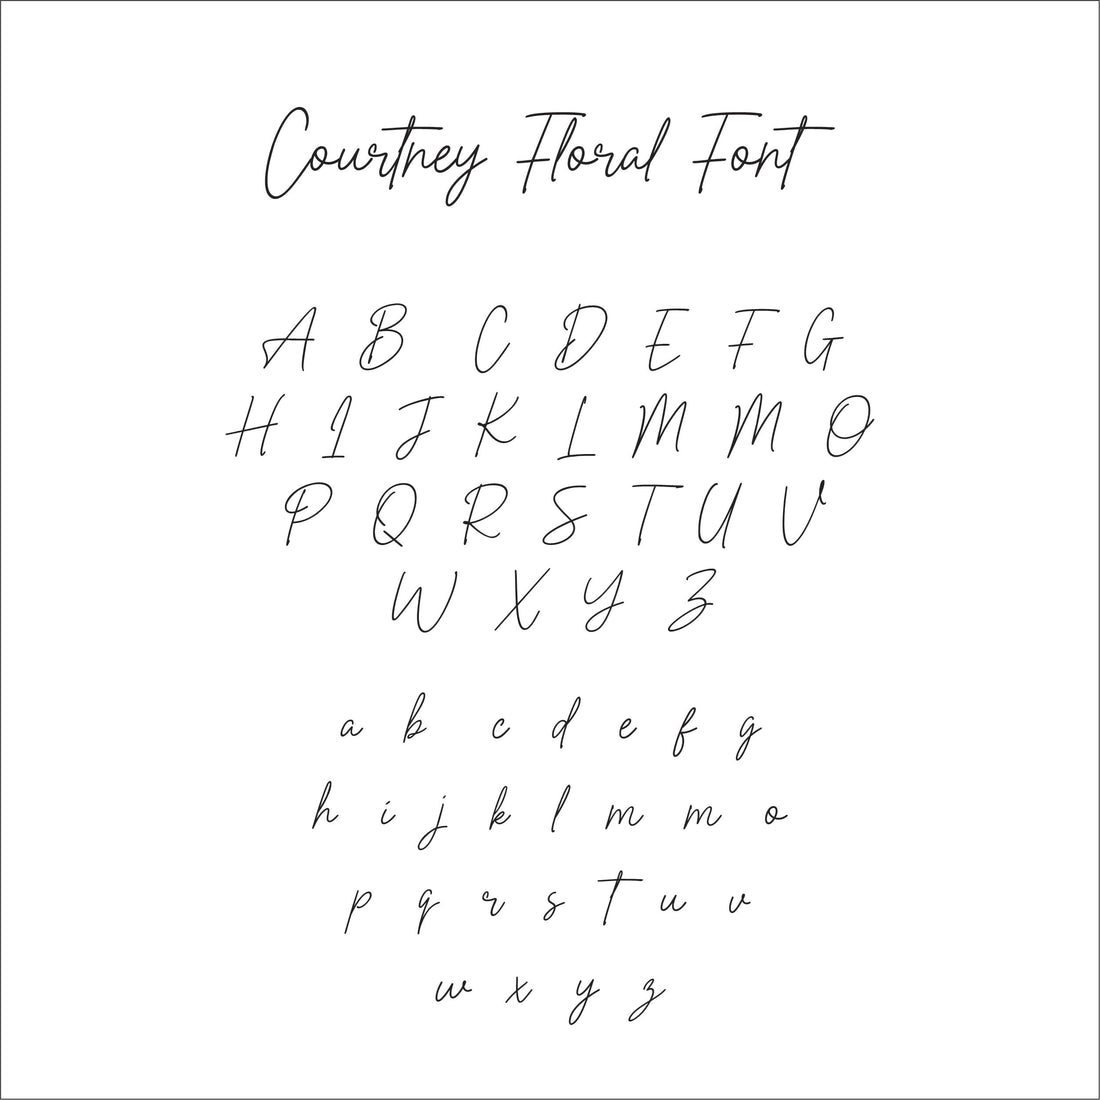 Courtney Floral Font
A B C D E F G
H I J K L M M O
P Q R S T U V
W X Y Z
a b c d e f g
h i j k l m m o
p q r s t u v
w x y z